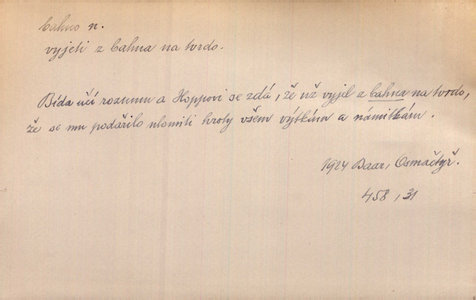 bahno n.
vyjeti z bahna na tvrdo.
Bída učí rozumu a Hoppovi se zdá, že už vyjel z bahna na tvrdo,
že se mu podařilo ulomiti hroty všem výtkám a námitkám.
1924 Baar, Osmačtyř.
458, 31